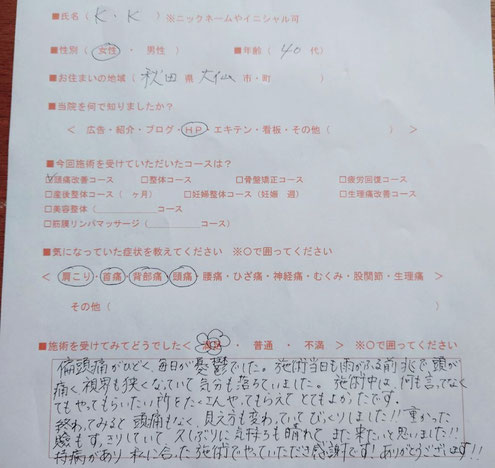 ■氏名（ K・K ）※ニックネームやイニシャル可
■性別（ 女性 ・ 男性 ） ■年齢（ 40 代）
■お住まいの地域（ 秋田 県 大仙 市・町 ）
■当院を何で知りましたか？
＜ 広告・紹介・ブログ・HP・エキテン・看板・その他（ ） ＞
■今回施術を受けていただいたコースは？
☑頭痛改善コース □整体コース □骨盤矯正コース □疲労回復コース
□産後整体コース（ ヶ月） □妊婦整体コース（妊娠 週） □生理痛改善コース
□美容整体（ コース
□筋膜リンパマッサージ（ コース）
■気になっていた症状を教えてください ※○で囲ってください
＜ 肩こり・首痛・背部痛・頭痛・腰痛・ひざ痛・神経痛・むくみ・股関節・生理痛 ＞
その他（ ）
■施術を受けてみてどうでした＜ ・ 普通 ・ 不満 ＞ ※○で囲ってください
偏頭痛がひどく、毎日が憂鬱でした。施術当日も雨がふる前兆で、頭が
痛く視界も狭くなっていて気分も落ちていました。施術中は、何も言ってなく
てもやってもらいたい所をたくさんやってもらえてとてもよかったです。
終わってみると頭痛もなく、見え方も変わっていてびっくりしました!!重かった
瞼もすっきりしていて久しぶりに気持ちも晴れて、また来たいと思いました!!
持病があり私に合った施術でやっていただき感謝です!ありがとうございます!!